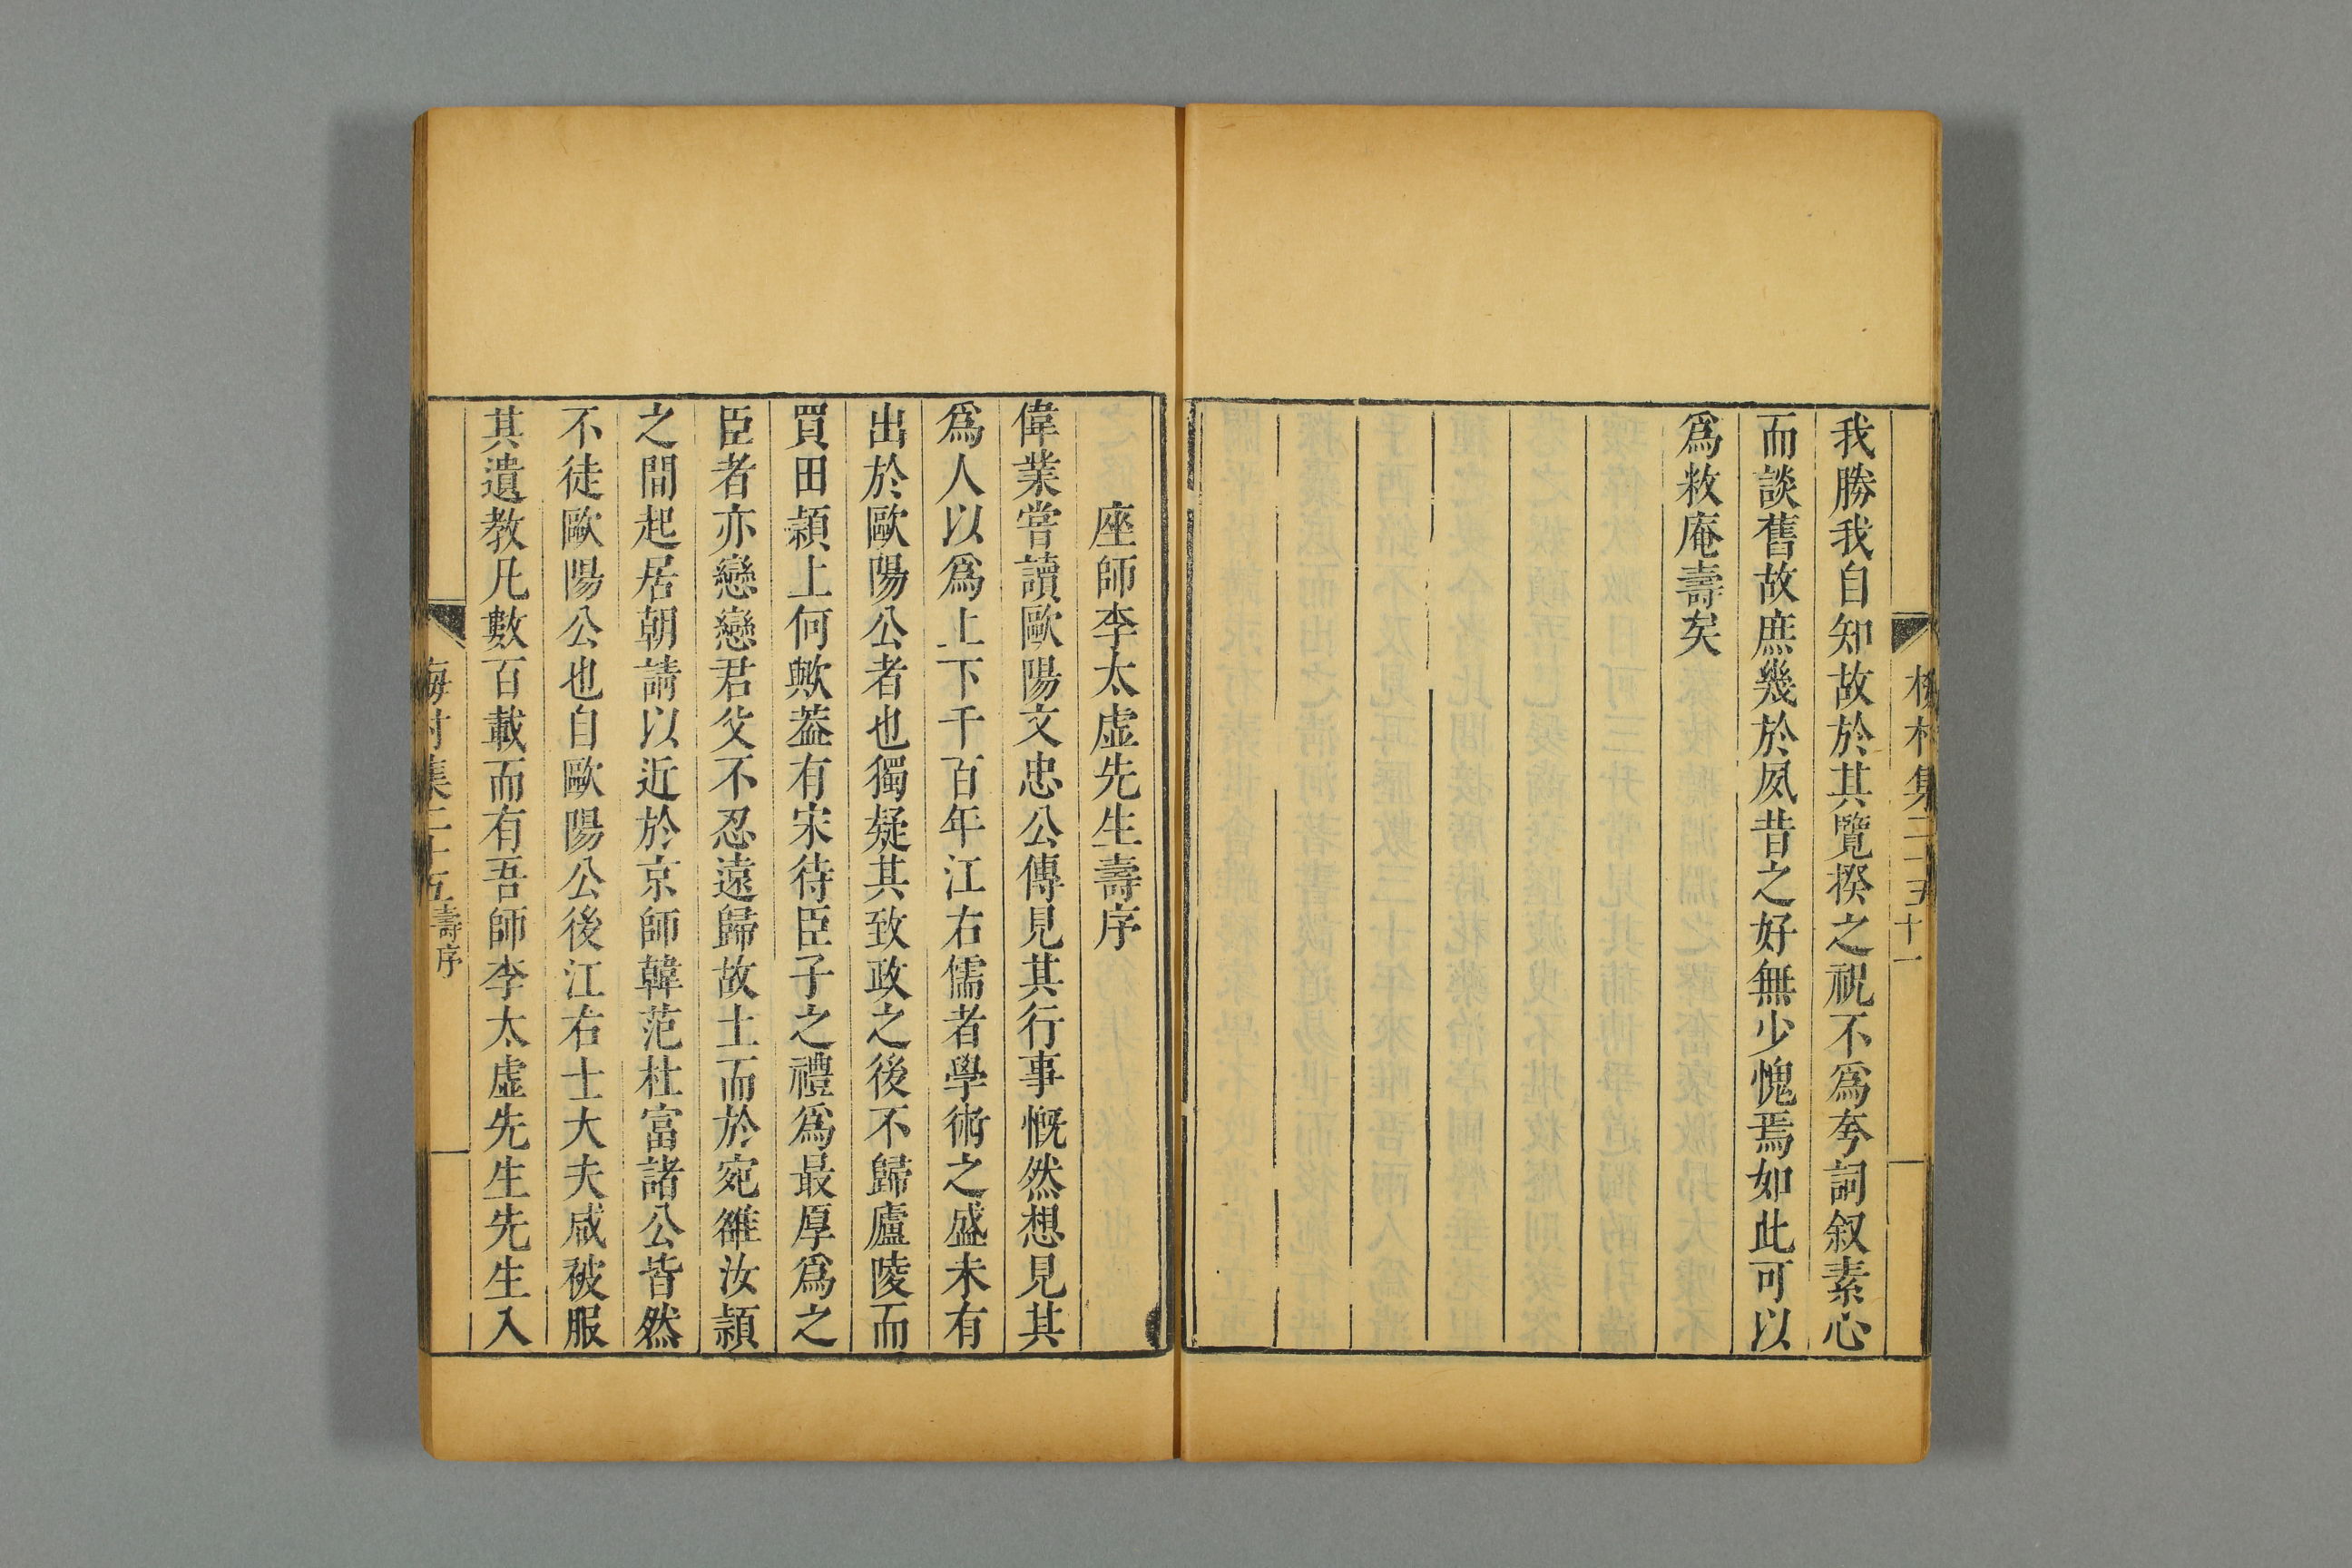 梅村集二十五
十一
我勝我自知故於其覽揆之祝不爲夸詞叙素心
而談舊故庶幾於夙昔之好無少愧焉如此可以
爲敉庵壽矣
座師李太虛先生壽序
偉業嘗讀歐陽文忠公傳見其行事慨然想見其
爲人以爲上下千百年江右儒者學術之盛未有
出於歐陽公者也獨疑其致政之後不歸廬陵而
買田潁上何歟葢有宋待臣子之禮爲最厚爲之
臣者亦戀戀君父不忍遠歸故土而於宛雒汝潁
之間起居朝請以近於京師韓范杜富諸公皆然
不徒歐陽公也自歐陽公後江右士大夫咸被服
其遺教凡數百載而有吾師李太虛先生先生入
梅村集二十五
壽序